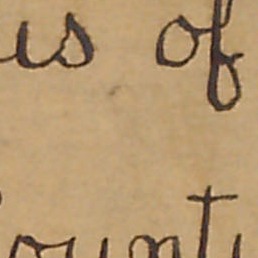 is of
ounty